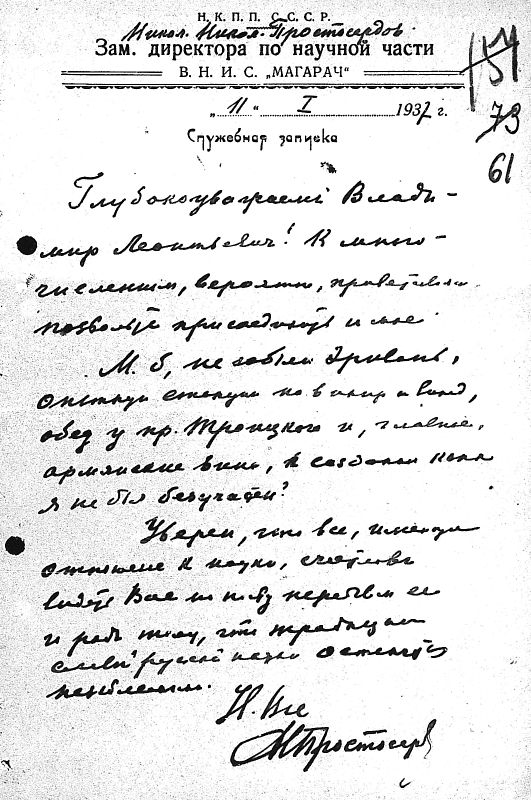 Н. К. П. П. С. С. С. Р.
Никол. Никол. Простосердов
Зам. директора по научной части
В. Н. И. С. „МАГАРАЧ“
„11“ I 1937 г.
Служебная записка
151
73
61
Глубокоуважаемый Влади-
мир Леонтьевич! К много-
численным, вероятно, приветствиям
позвольте присоединить и мое
М. б., не забыли Эривань,
опытную станцию по винир. и винод,
обед у пр. Троицкого и, главное,
армянские вина, к созданию коих
я не был безучастен?
Уверен, что все, имеющие
отношение к науке, счастливы
видеть Вас на посту первым ее
и рады тому, что традиции
славы русской науки останутся
незыблемыми.
Н. Простосерд